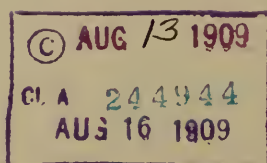 © AUG 13 1909
CL A 244944
AUG 16 1909